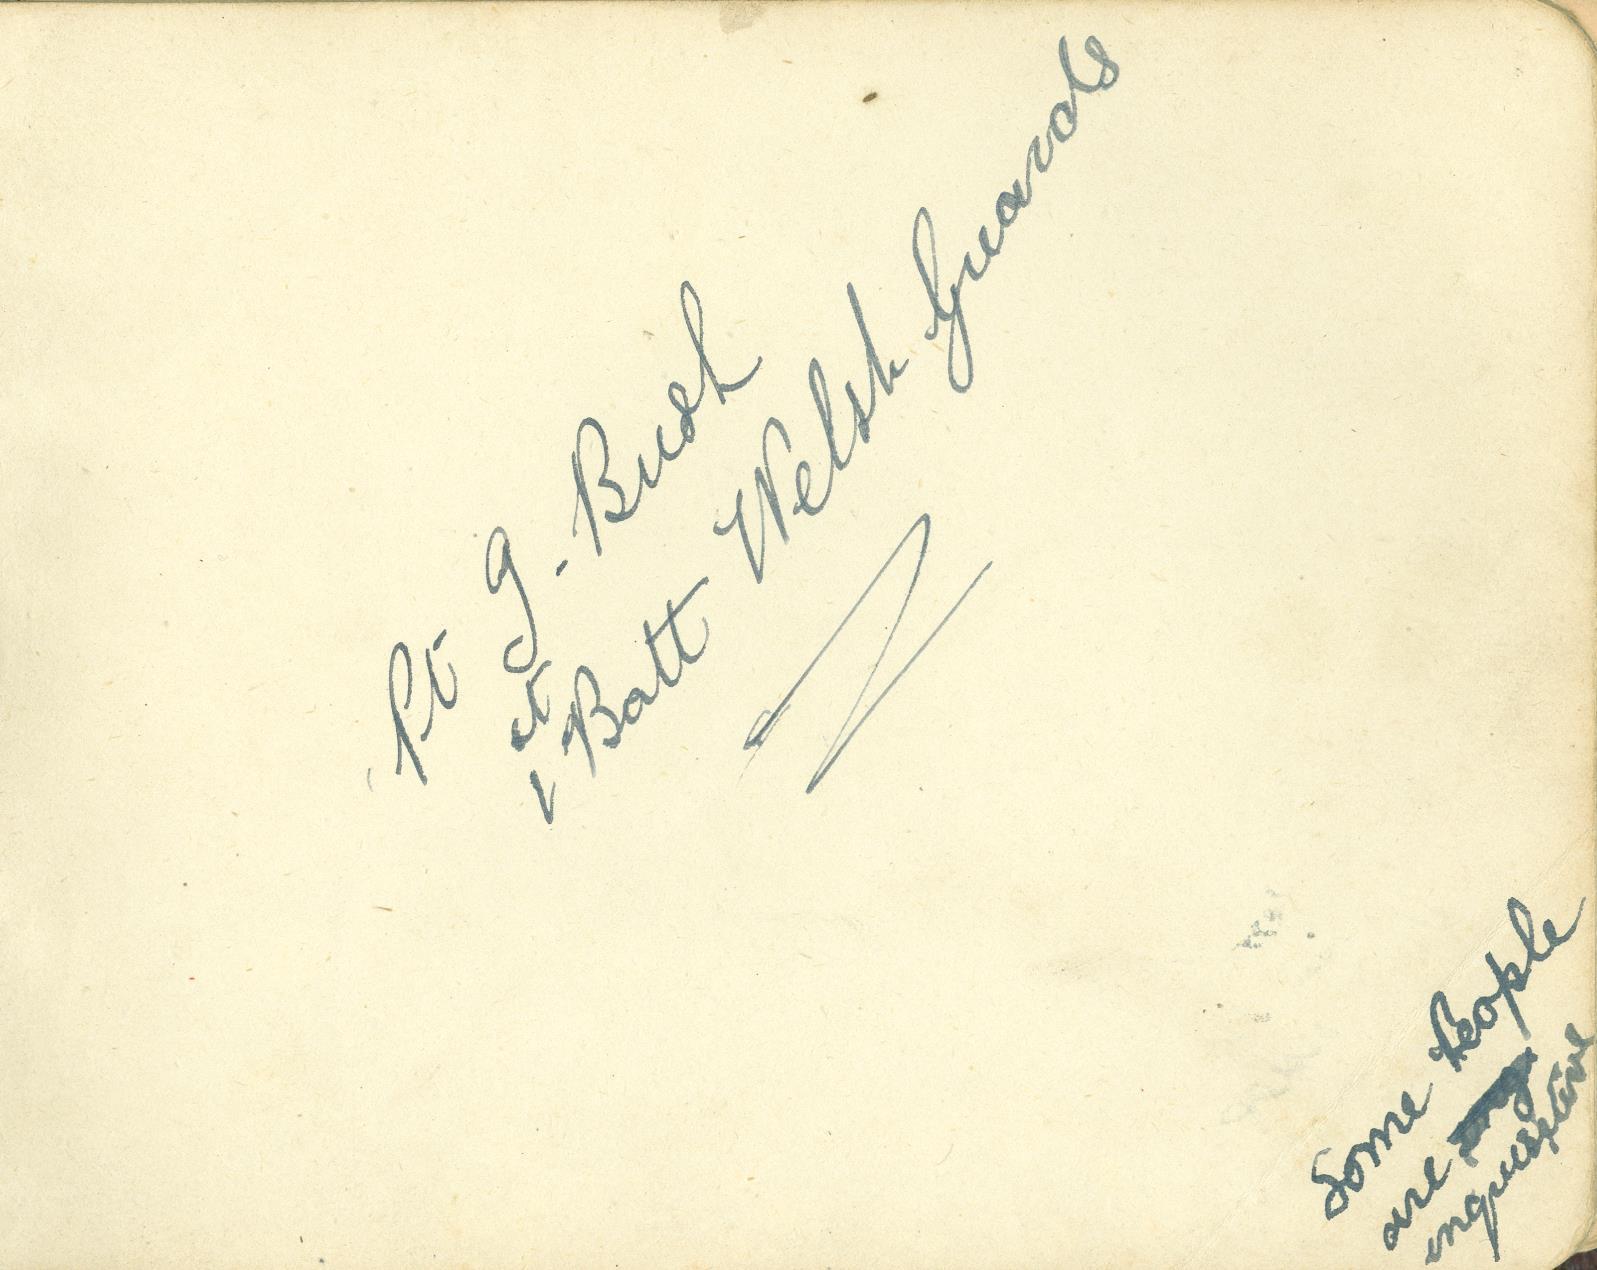 Pt G. Bush
1st Batt Welsh Guards
Some People
are
inqusitive